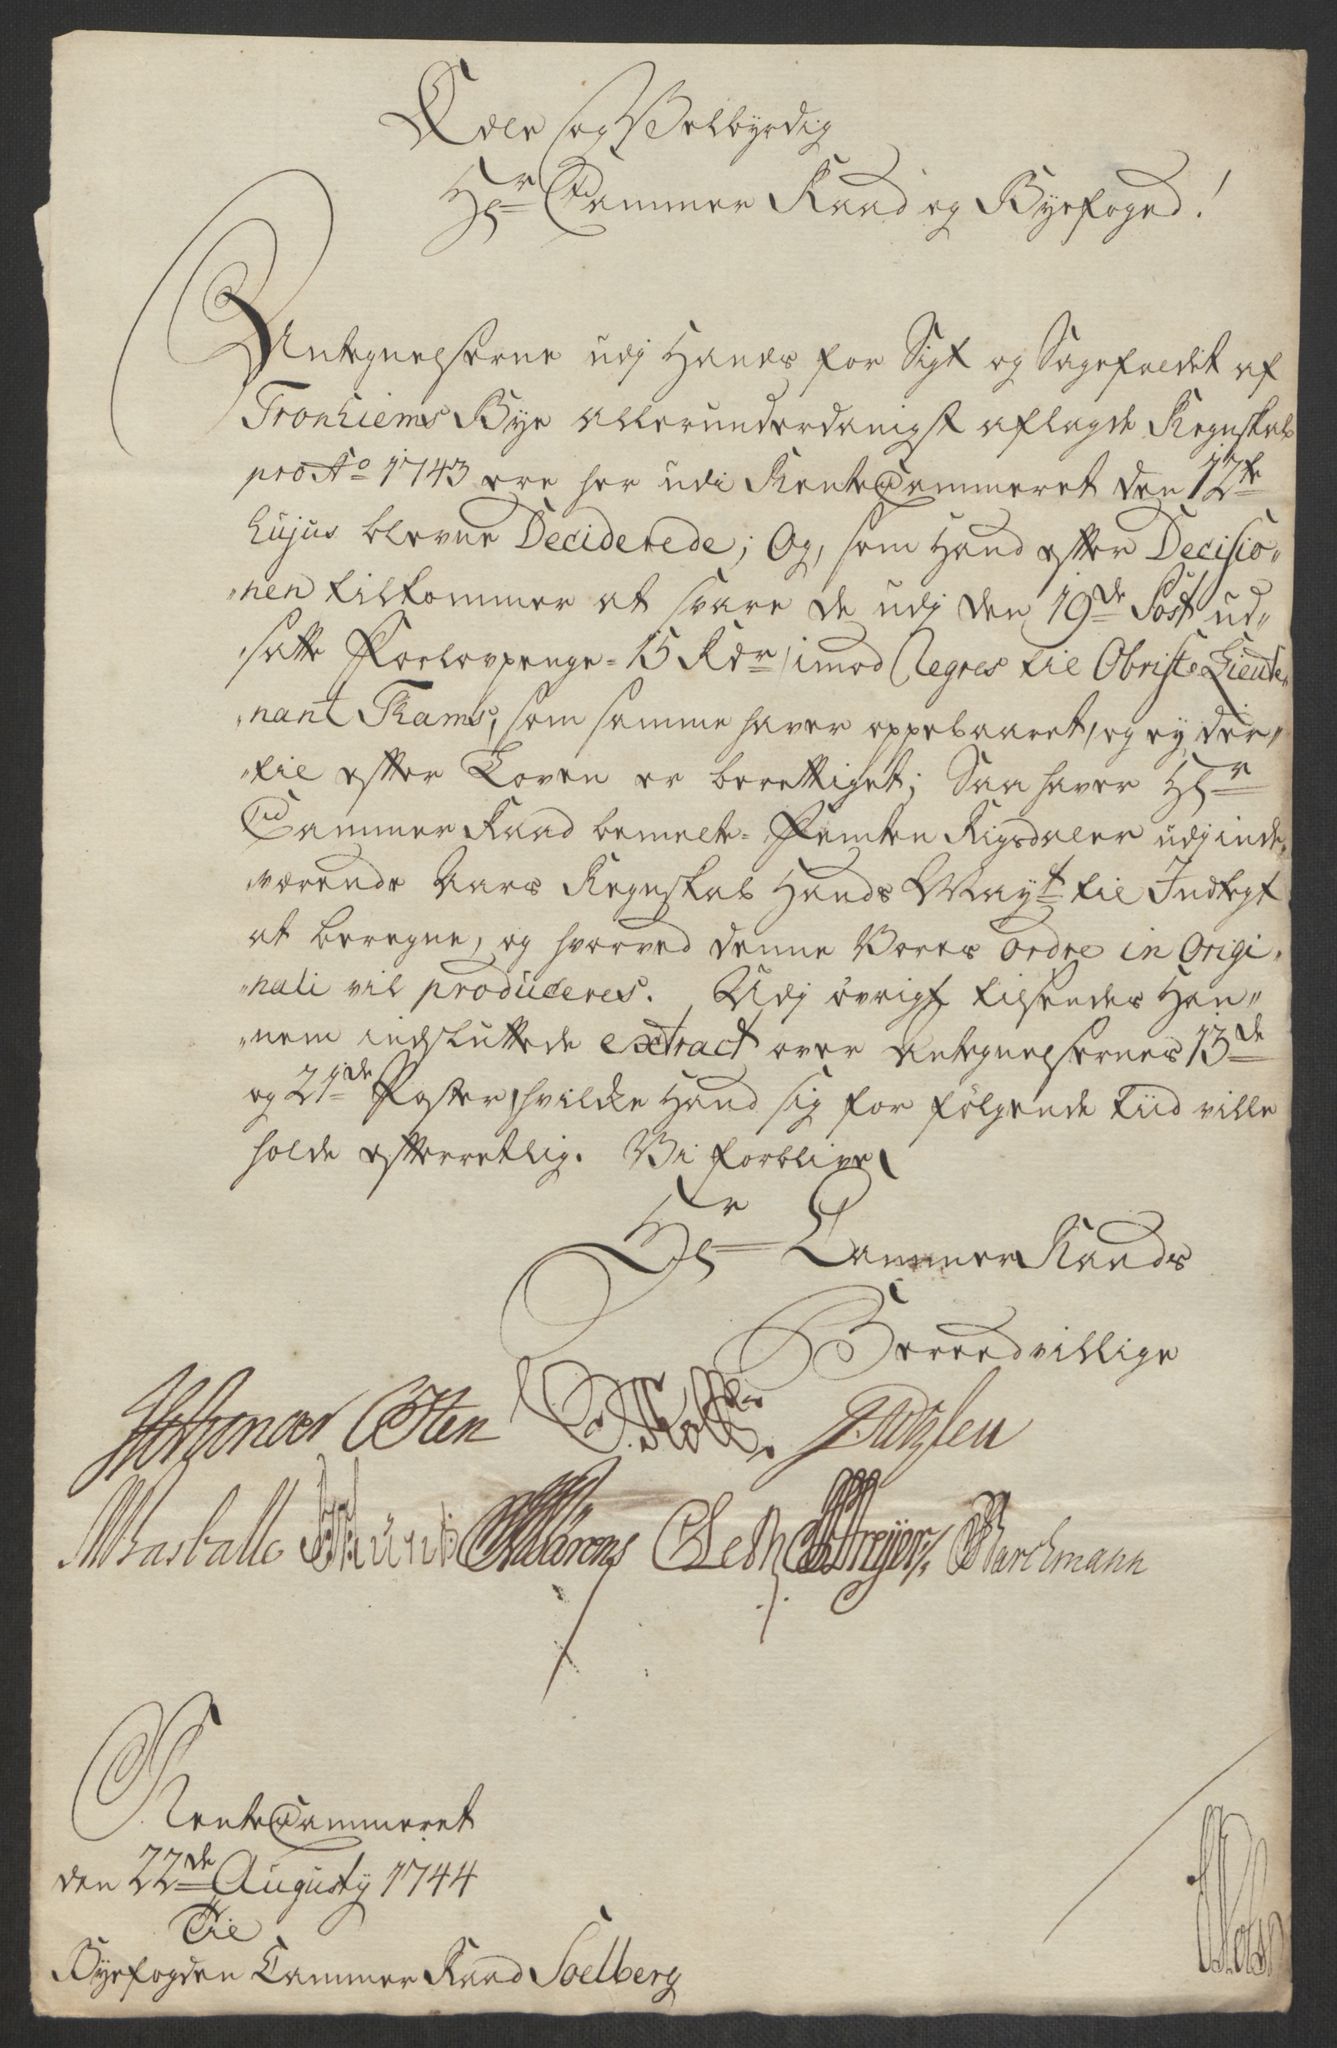 Edle og Velbyrdig
Hr. Cammer Raad og Byefoged!
Antegnelserne udj Hands for Sigt og Sagefaldet af
Tronhiems Bye allerunderdanigst aflagde Regnskab
pro Ao 1743 ere her udi RenteCammeret den 12te
hujus blevne Deciderede; Og, som Hand efter Decisio„
„nen tilkommer at svare de udj den 19de Post ud„
„satte Forlovpenge = 15 Rdr /imod Regres til ObristeLieute„
„nant Rams, som samme haver oppebaaret, og ey der„
„til efter Loven er berettiget; Saa haver Hr.
Cammer Raad bemelte = Femten Rigsdaler udj inde„
„værende Aars Regnskab Hands Mayt. til Indtegt
at beregne, og hvorved denne Vores Ordre in Origi„
„nali vil produceres. Udj øvrigt tilsendes Han„
„nem indsluttede extract over Antegnelsernes 13de
og 21de Poster, hvilke Hand sig for følgende tiid ville
holde efterretlig. Vi forblive
Hr. Cammer Raads
Beredvillige
Holst
CLeth Barchmann
RenteCammeret
den 22de Augustij 1744
Til
Byefogden Cammer Raad Soelberg